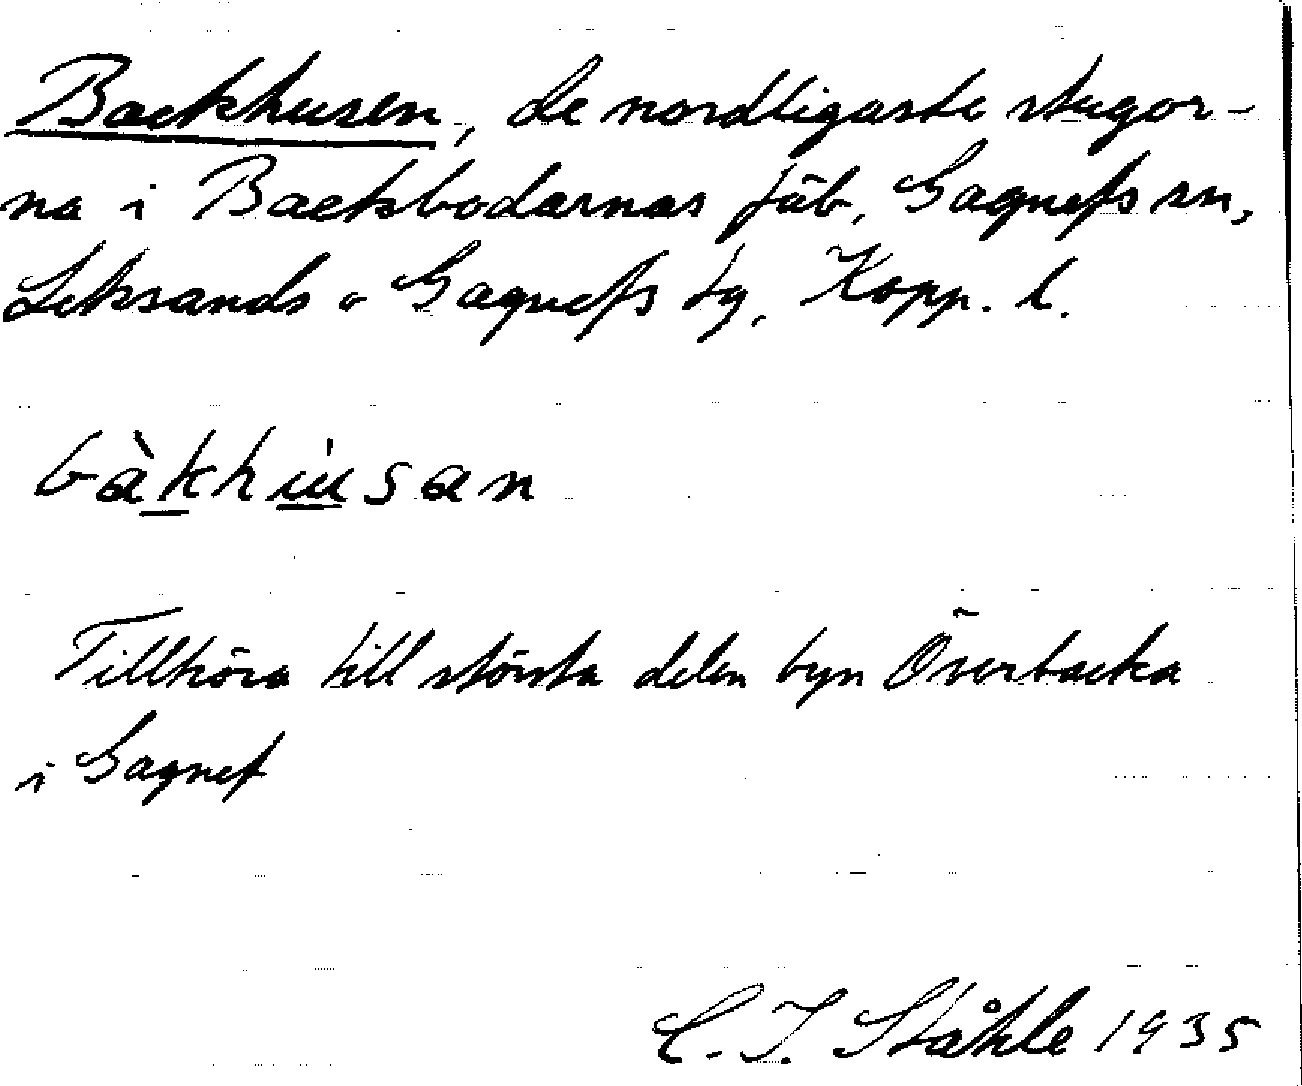 Backhusen, de nordligaste stugor-
na i Backbodarnas fäb, Gagnefs sn,
Leksands o Gagnefs tg, Kopp. l.
bàkhùsan
Tillhöra till största delen byn Överbacka
i Gagnef
C. I. Ståhle 1935